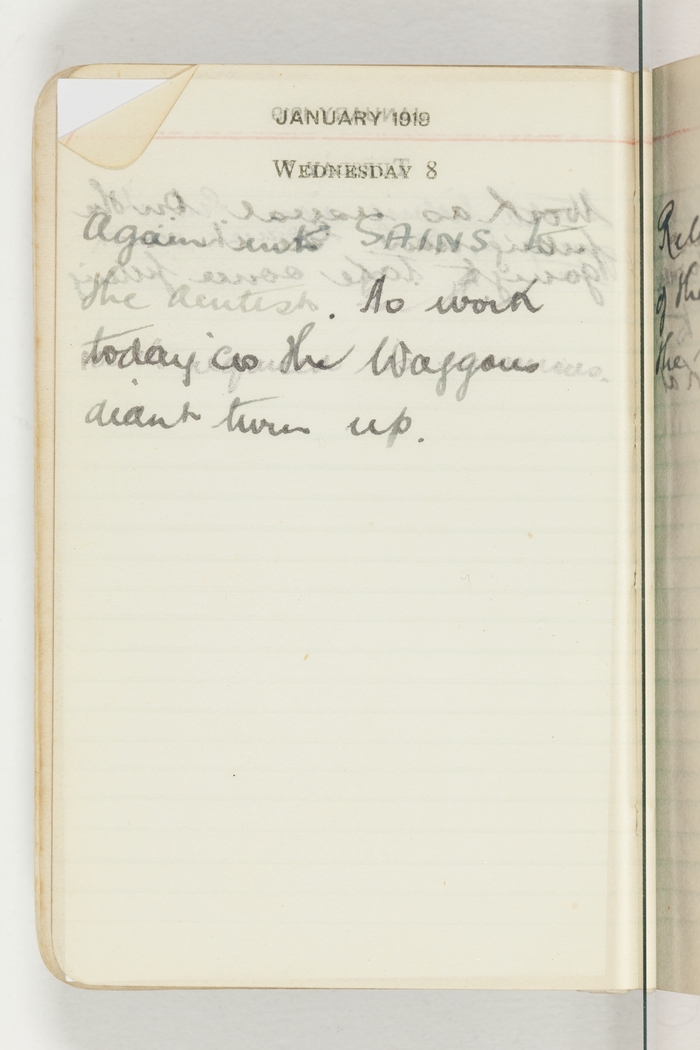 JANUARY 1919
WEDNESDAY 8
Again SAINS to
the dentist. No work
today as the Waggons
didnt turn up.
of the
the